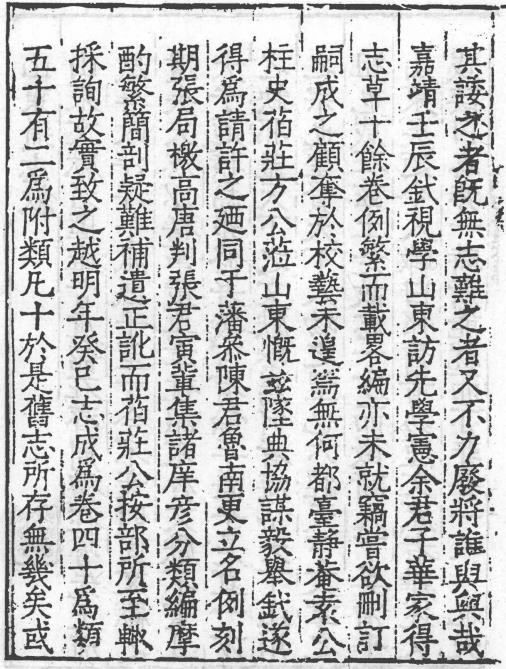 其諉之者旣無志難之者又不力廢將誰與興哉
嘉靖壬辰釴視學山東訪先學憲余君子華家得
志草十餘卷例繁而載畧編亦未就竊嘗欲刪訂
嗣成之顧奪於校藝未遑焉無何都臺靜菴袁公
柱史𦰡莊方公涖山東慨玆墜典協謀毅舉釴遂
得爲請許之廼同于藩叅陳君魯南更立名例刻
期張局檄高唐判張君寅輩集諸庠彥分類編摩
酌繁簡剖疑難補遺正訛而𦰡莊公按部所至輙
採詢故實致之越明年癸巳志成爲卷四十爲類
五十有二爲附類凡十於是舊志所存無幾矣或